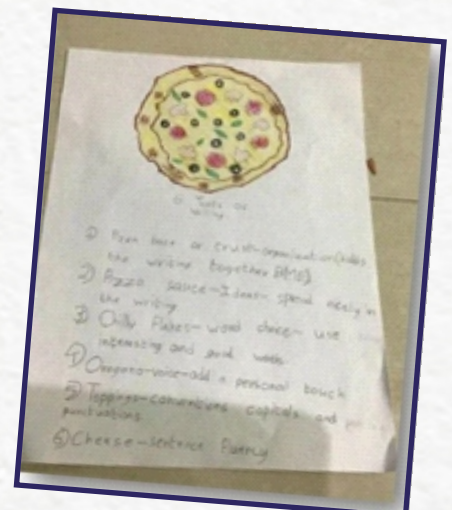 6 Traits Of
Writing
① Pizza base or crust-organisation(holds
the writing together BME)
2) Pizza sauce-Ideas- spread evenly in
the writing
③ Chilly flakes- word choice- use
interesting and good words
④ Oregano-voice-add a personal touch
⑤ Toppings-conventions capitals and
punctuations
⑥ Cheese-sentence fluency